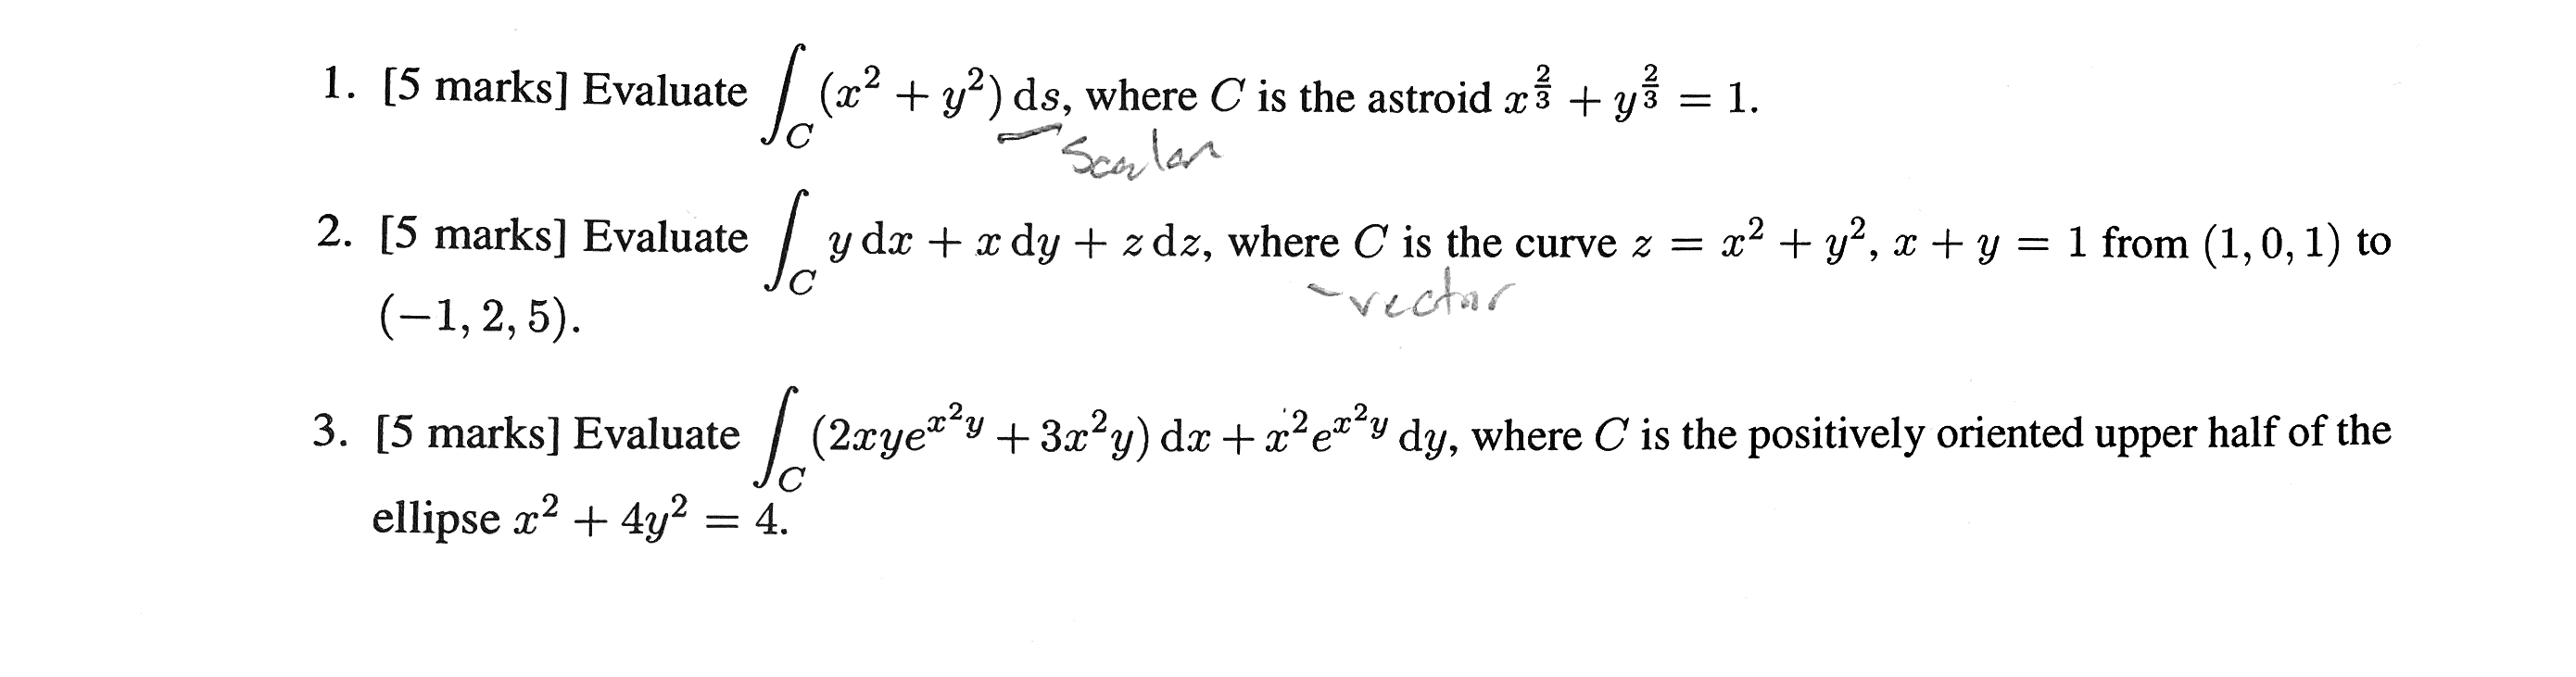 1. [5 marks] Evaluate ∫_C (x² + y²) ds, where C is the astroid x^{2/3} + y^{2/3} = 1.
Scalar
2. [5 marks] Evaluate ∫_C y dx + x dy + z dz, where C is the curve z = x² + y², x + y = 1 from (1, 0, 1) to
-vector
(−1, 2, 5).
3. [5 marks] Evaluate ∫_C (2xye^{x²y} + 3x²y) dx + x²e^{x²y} dy, where C is the positively oriented upper half of the
ellipse x² + 4y² = 4.